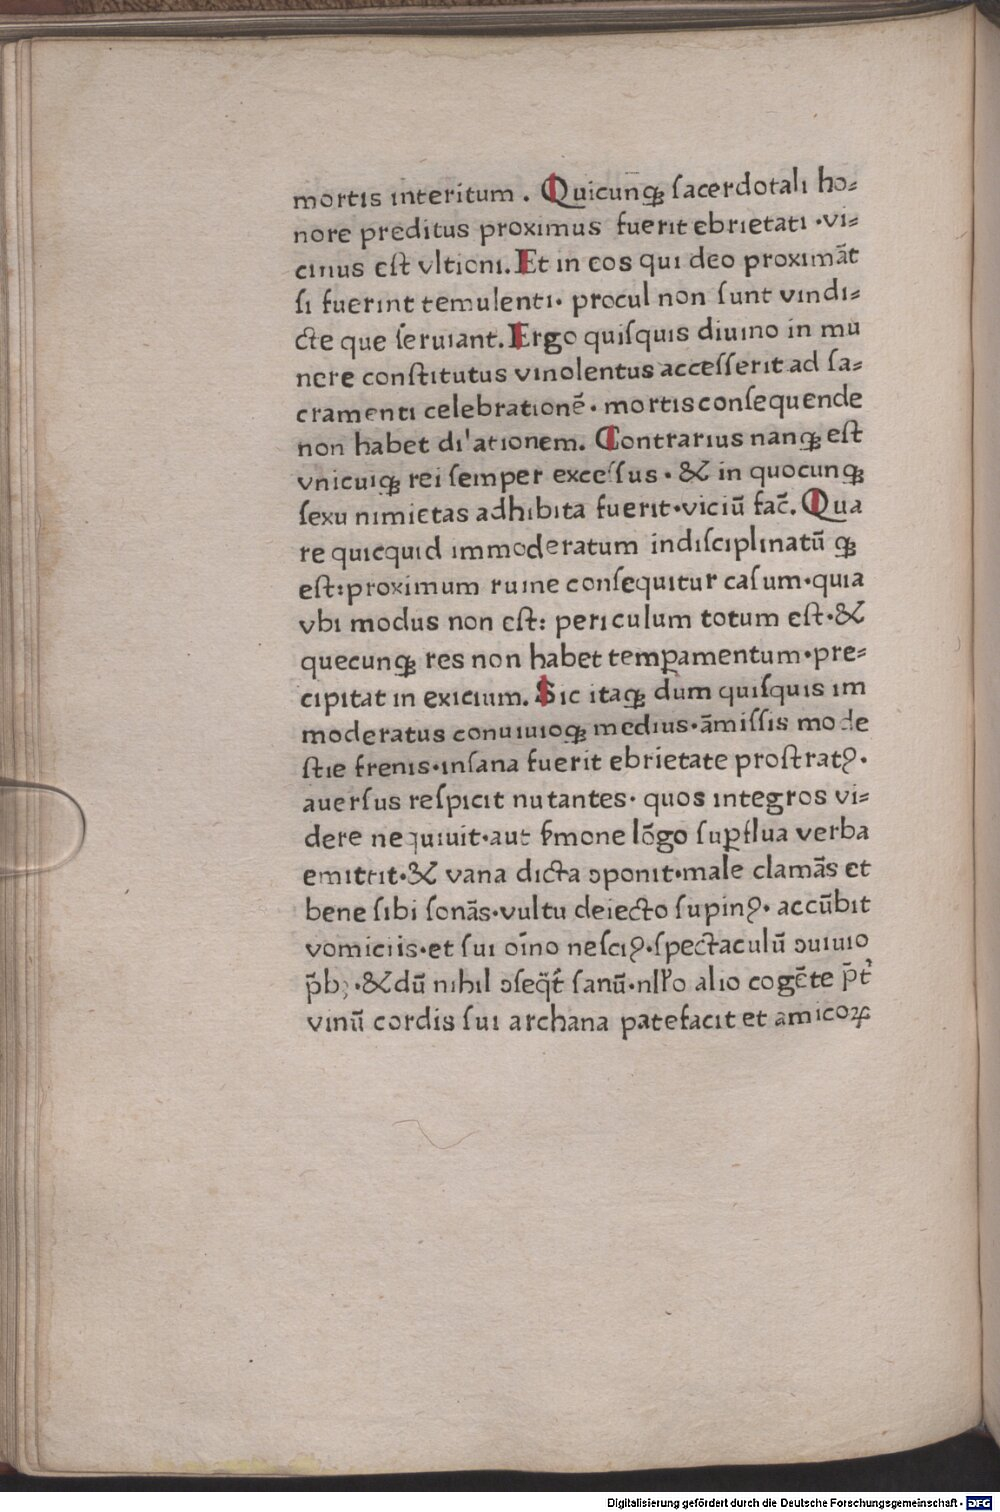 mortis interitum . Quicunqꝫ ſacerdotali ho⸗
nore preditus proximus fuerit ebrietati ·vi⸗
cinus eſt vltioni. Et in eos qui deo proximãt
ſi fuerint temulenti· procul non ſunt vindi⸗
cte que ſeruiant. Ergo quiſquis diuino in mu
nere conſtitutus vinolentus acceſſerit ad ſa⸗
cramenti celebrationẽ· mortis conſequende
non habet di'ationem. Contrarius nanqꝫ eſt
vnicuiqꝫ rei ſemper exceſſus· & in quocunqꝫ
ſexu nimietas adhibita fuerit·viciũ fac̃. Qua
re quicquid immoderatum indiſciplinatũ qꝫ
eſt:proximum ruine conſequitur caſum·quia
vbi modus non eſt: periculum totum eſt·&
quecunqꝫ res non habet temꝑamentum·pre⸗
cipitat in exicium. Sic itaqꝫ dum quiſquis im
moderatus conuiuioqꝫ medius·ãmiſſis mode
ſtie frenis·inſana fuerit ebrietate proſtratꝰ·
auerſus reſpicit nutantes· quos integros vi⸗
dere nequiuit·aut ẜmone lõgo ſuꝑflua verba
emittit·& vana dicta ɔponit·male clamãs et
bene ſibi ſonãs·vultu deiecto ſupinꝰ· accũbit
vomiciis·et ſui oĩno neſciꝰ·ſpectaculũ ɔuiuio
p̃bꝫ·& dũ nihil ɔſeq̃t᷑ ſanũ·nłło alio cogẽte p̃t᷑
vinũ cordis ſui archana patefacit et amicoꝝ
Digitalisierung gefördert durch die Deutsche Forschungsgemeinschaft - DFG